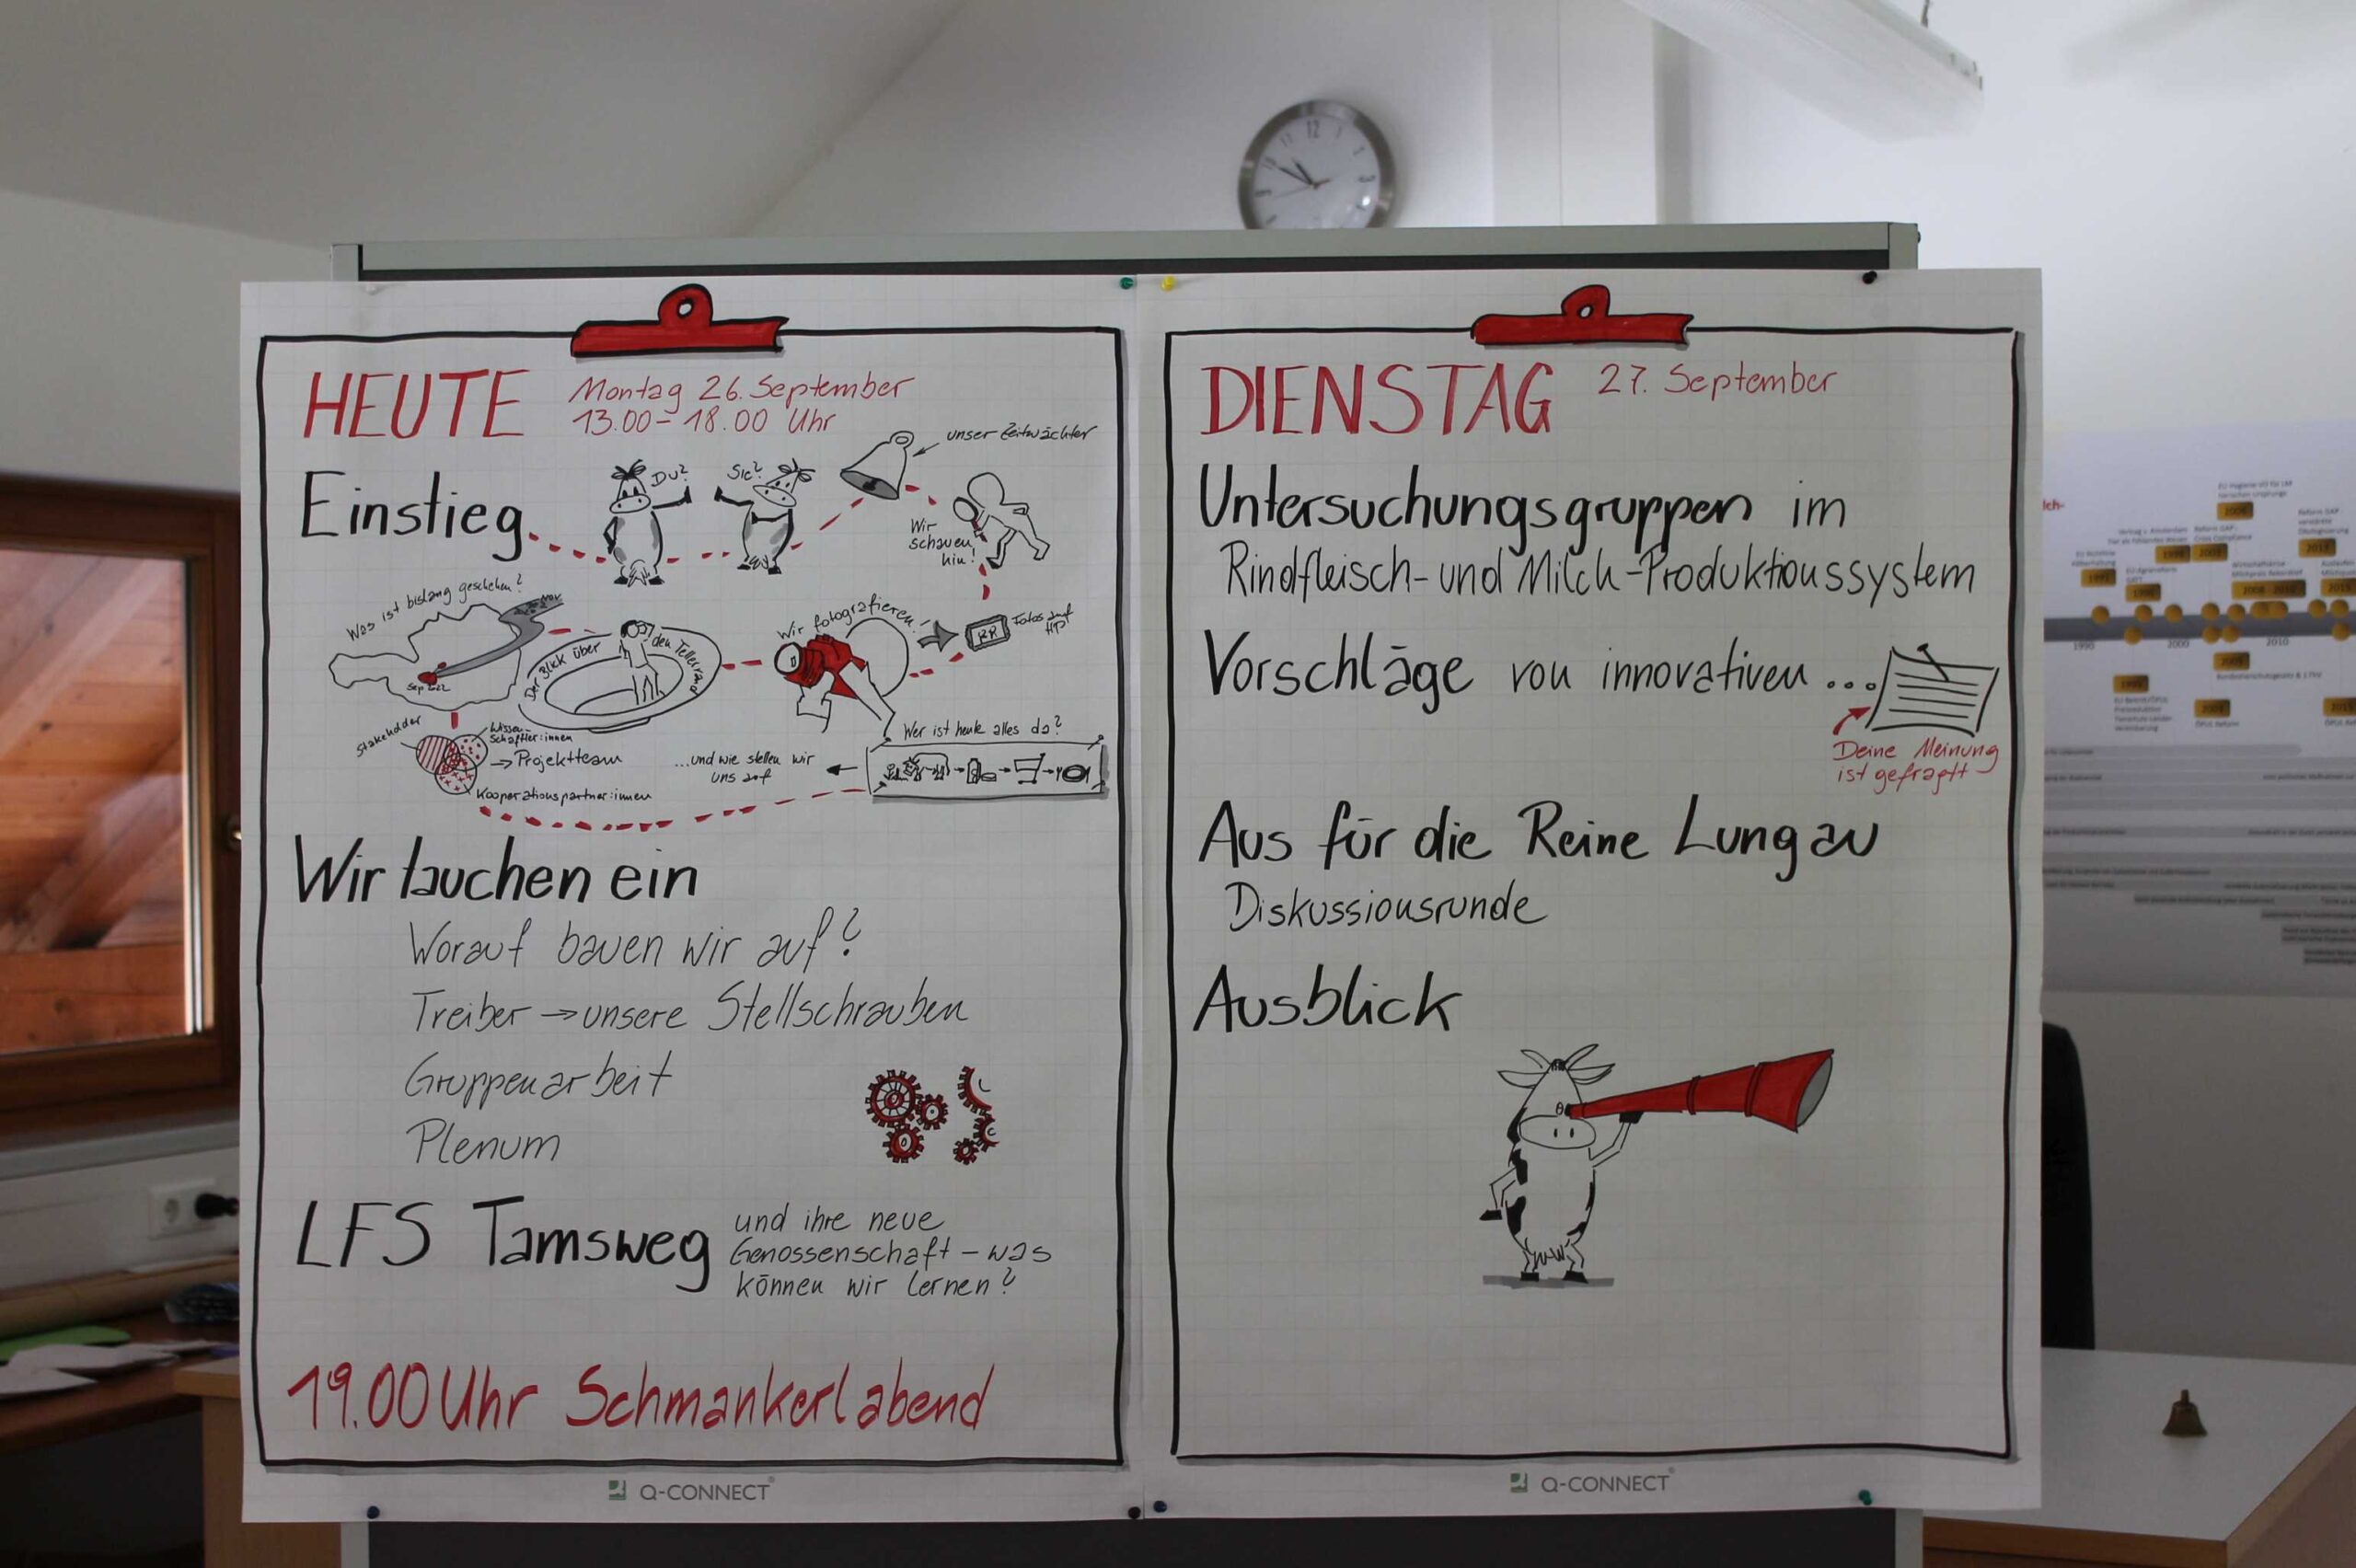 HEUTE
Montag 26. September
13.00 - 18.00 Uhr
unser Zeitwächter
Einstieg
Du?
Sie?
Wir
schauen
hin!
Was ist bislang geschehen?
Nov
Sep 2022
Der Blick über den Tellerrand
Wir fotografieren!
Fotos auf
HP
Stakeholder
Wissen-
schaftler:innen
→ Projektteam
Kooperationspartner:innen
...und wie stellen wir
uns auf
Wer ist heute alles da?
Wir tauchen ein
Worauf bauen wir auf?
Treiber → unsere Stellschrauben
Gruppenarbeit
Plenum
LFS Tamsweg
und ihre neue
Genossenschaft - was
können wir lernen?
19.00 Uhr Schmankerlabend
Q-CONNECT®
DIENSTAG
27. September
Untersuchungsgruppen im
Rindfleisch- und Milch-Produktionssystem
Vorschläge von innovativen ...
Deine Meinung
ist gefragt
Aus für die Reine Lungau
Diskussionsrunde
Ausblick
Q-CONNECT®
12
1990
2000
2010